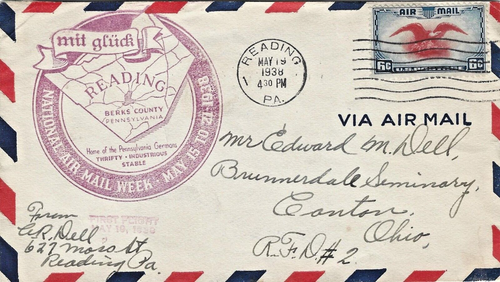 mit glück
READING
BERKS COUNTY
PENNSYLVANIA
Home of the Pennsylvania Germans
THRIFTY • INDUSTRIOUS
STABLE
NATIONAL AIR MAIL WEEK • MAY 15 TO 21ST 1938
READING
MAY 19
1938
4 30 PM
PA.
AIR MAIL
6¢ U.S. POSTAGE 6¢
VIA AIR MAIL
Mr Edward M. Dell,
Brunnerdale Seminary,
Canton,
Ohio,
R.F.D. # 2.
FIRST FLIGHT
MAY 19, 1938
From
C.R. Dell
627 Moss St
Reading Pa.